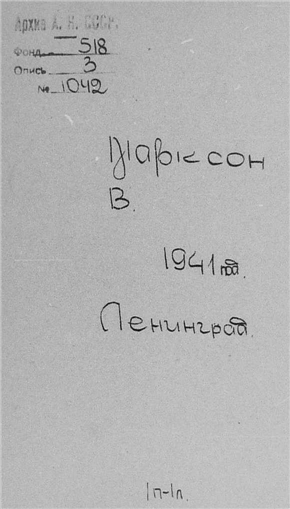 Архив А. Н. СССР.
Фонд 518
Опись 3
№ 1042
Марксон
В.
1941 год.
Ленинград.
1п-1л.